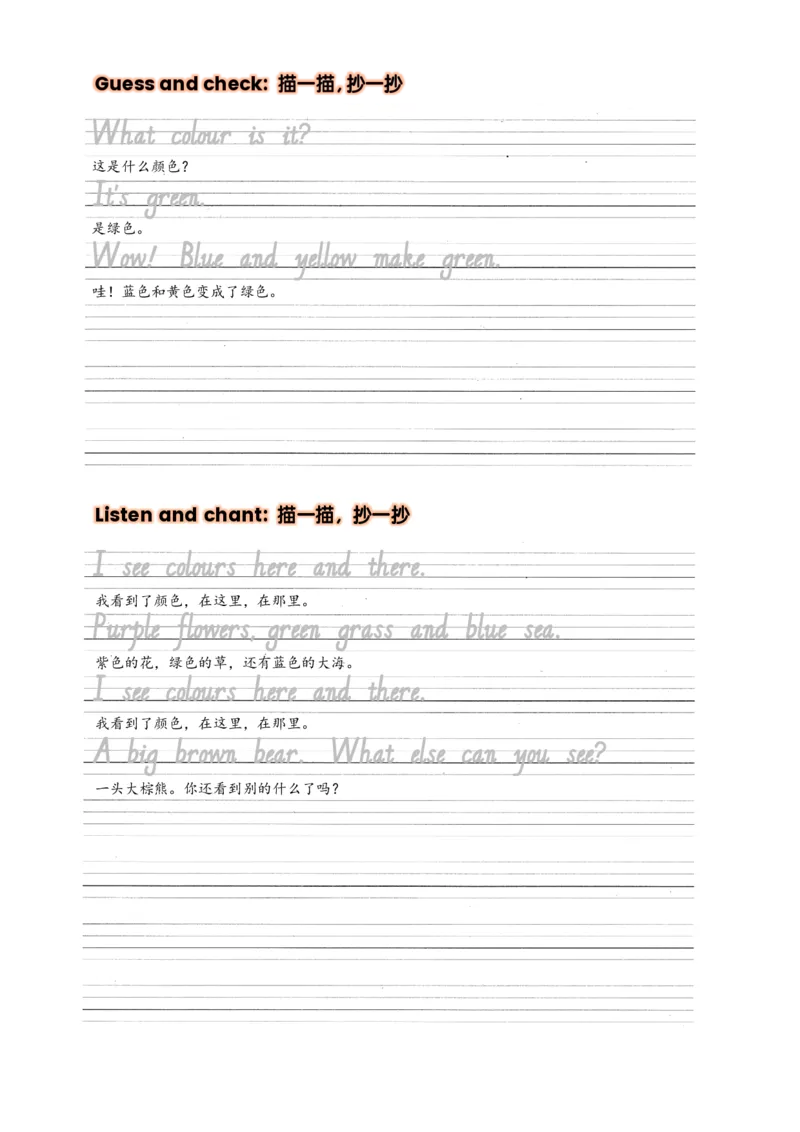 Guess and check: 描一描,抄一抄
What colour is it?
这是什么颜色?
It's green.
是绿色。
Wow! Blue and yellow make green.
哇!蓝色和黄色变成了绿色。
Listen and chant: 描一描，抄一抄
I see colours here and there.
我看到了颜色，在这里，在那里。
Purple flowers, green grass and blue sea.
紫色的花，绿色的草，还有蓝色的大海。
I see colours here and there.
我看到了颜色，在这里，在那里。
A big brown bear. What else can you see?
一头大棕熊。你还看到别的什么了吗?